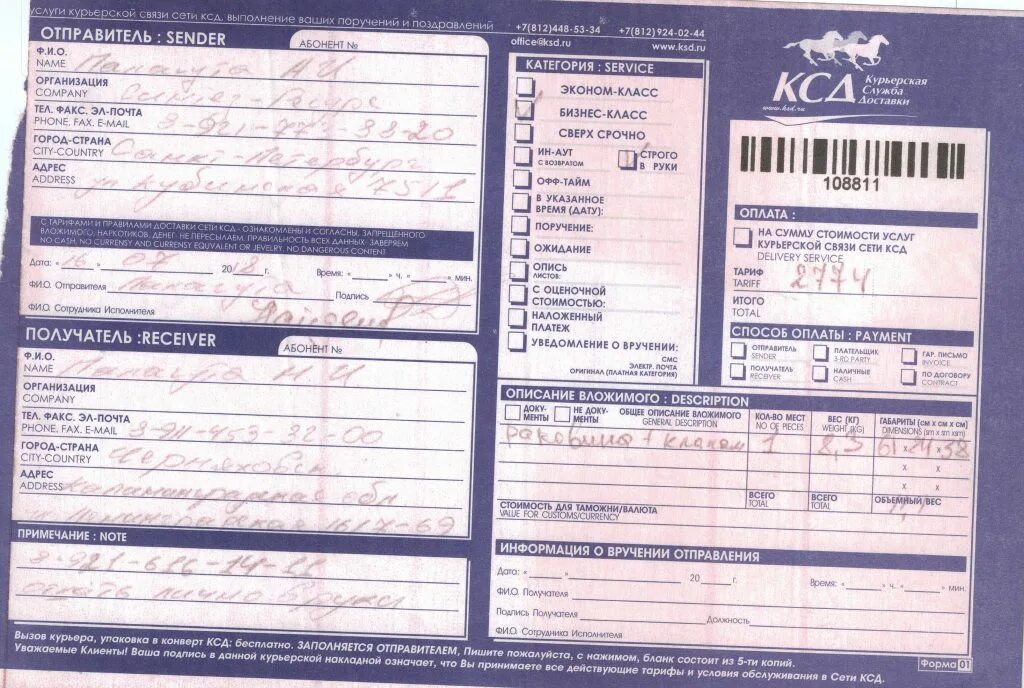 услуги курьерской связи сети КСД. выполнение ваших поручений и поздравлений
+7(812)448-53-34 +7(812)924-02-44
office@ksd.ru www.ksd.ru
ОТПРАВИТЕЛЬ : SENDER
АБОНЕНТ №
Ф.И.О.
NAME
ОРГАНИЗАЦИЯ
COMPANY
ТЕЛ. ФАКС. ЭЛ-ПОЧТА
PHONE. FAX. E-MAIL
ГОРОД-СТРАНА
CITY-COUNTRY Санкт-Петербург
АДРЕС
ADDRESS
С ТАРИФАМИ И ПРАВИЛАМИ ДОСТАВКИ СЕТИ КСД - ОЗНАКОМЛЕНЫ И СОГЛАСНЫ. ЗАПРЕЩЕННОГО
ВЛОЖИМОГО, НАРКОТИКОВ, ДЕНЕГ- НЕ ПЕРЕСЫЛАЕМ. ПРАВИЛЬНОСТЬ ВСЕХ ДАННЫХ- ЗАВЕРЯЕМ
NO CASH, NO CURRENSY AND CURRENSY EQUVALENT OR JEVELRY. NO DANGEROUS CONTENT
Дата: «16» 07 2018 г. Время: « » ч. « » мин.
Ф.И.О. Отправителя Подпись
Ф.И.О. Сотрудника Исполнителя
ПОЛУЧАТЕЛЬ :RECEIVER
АБОНЕНТ №
Ф.И.О.
NAME
ОРГАНИЗАЦИЯ
COMPANY
ТЕЛ. ФАКС. ЭЛ-ПОЧТА
PHONE. FAX. E-MAIL 8-911-453-32-00
ГОРОД-СТРАНА
CITY-COUNTRY Черняховск
АДРЕС
ADDRESS Калининградская обл
ПРИМЕЧАНИЕ : NOTE
КАТЕГОРИЯ : SERVICE
ЭКОНОМ-КЛАСС
БИЗНЕС-КЛАСС
СВЕРХ СРОЧНО
ИН-АУТ
С ВОЗВРАТОМ
СТРОГО
В РУКИ
ОФФ-ТАЙМ
В УКАЗАННОЕ
ВРЕМЯ (ДАТУ):
ПОРУЧЕНИЕ:
ОЖИДАНИЕ
ОПИСЬ
ЛИСТОВ:
С ОЦЕНОЧНОЙ
СТОИМОСТЬЮ:
НАЛОЖЕННЫЙ
ПЛАТЕЖ
УВЕДОМЛЕНИЕ О ВРУЧЕНИИ:
СМС
ЭЛЕКТР. ПОЧТА
ОРИГИНАЛ (ПЛАТНАЯ КАТЕГОРИЯ)
КСД Курьерская
Служба
Доставки
www.ksd.ru
108811
ОПЛАТА :
НА СУММУ СТОИМОСТИ УСЛУГ
КУРЬЕРСКОЙ СВЯЗИ СЕТИ КСД
DELIVERY SERVICE
ТАРИФ
TARIFF 2774
ИТОГО
TOTAL
СПОСОБ ОПЛАТЫ : PAYMENT
ОТПРАВИТЕЛЬ
SENDER
ПЛАТЕЛЬЩИК
3-RD PARTY
ГАР. ПИСЬМО
INVOICE
ПОЛУЧАТЕЛЬ
RECEIVER
НАЛИЧНЫЕ
CASH
ПО ДОГОВОРУ
CONTRACT
ОПИСАНИЕ ВЛОЖИМОГО : DESCRIPTION
ДОКУ-
МЕНТЫ
НЕ ДОКУ-
МЕНТЫ
ОБЩЕЕ ОПИСАНИЕ ВЛОЖИМОГО
GENERAL DESCRIPTION
КОЛ-ВО МЕСТ
NO OF PIECES
ВЕС (КГ)
WEIGHT (KG)
ГАБАРИТЫ (СМ х СМ х СМ)
DIMENSIONS (sm x sm xsm)
раковина + клапан 1 8,3
х х
х х
СТОИМОСТЬ ДЛЯ ТАМОЖНИ/ВАЛЮТА
VALUE FOR CUSTOMS/CURRENCY
ВСЕГО
TOTAL
ВСЕГО
TOTAL
ОБЪЕМНЫЙ ВЕС
ИНФОРМАЦИЯ О ВРУЧЕНИИ ОТПРАВЛЕНИЯ
Дата: « » 20 г. Время: « » ч. « » мин.
Ф.И.О. Получателя
Подпись Получателя Должность
Ф.И.О. Сотрудника Исполнителя
Вызов курьера, упаковка в конверт КСД: бесплатно. ЗАПОЛНЯЕТСЯ ОТПРАВИТЕЛЕМ, Пишите пожалуйста, с нажимом, бланк состоит из 5-ти копий.
Уважаемые Клиенты! Ваша подпись в данной курьерской накладной означает, что Вы принимаете все действующие тарифы и условия обслуживания в Сети КСД.
Форма 01